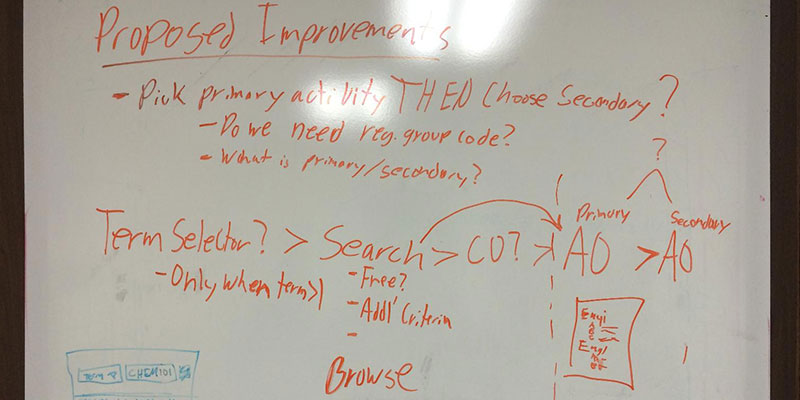 Proposed Improvements
- Pick primary activity THEN Choose Secondary?
- Do we need reg. group code?
- What is primary/secondary?
?
Primary Secondary
Term Selector? > Search > CO? > AO > AO
- Only when term >1
- Free?
- Addl' Criteria
-
Browse
Engl
CHEM101